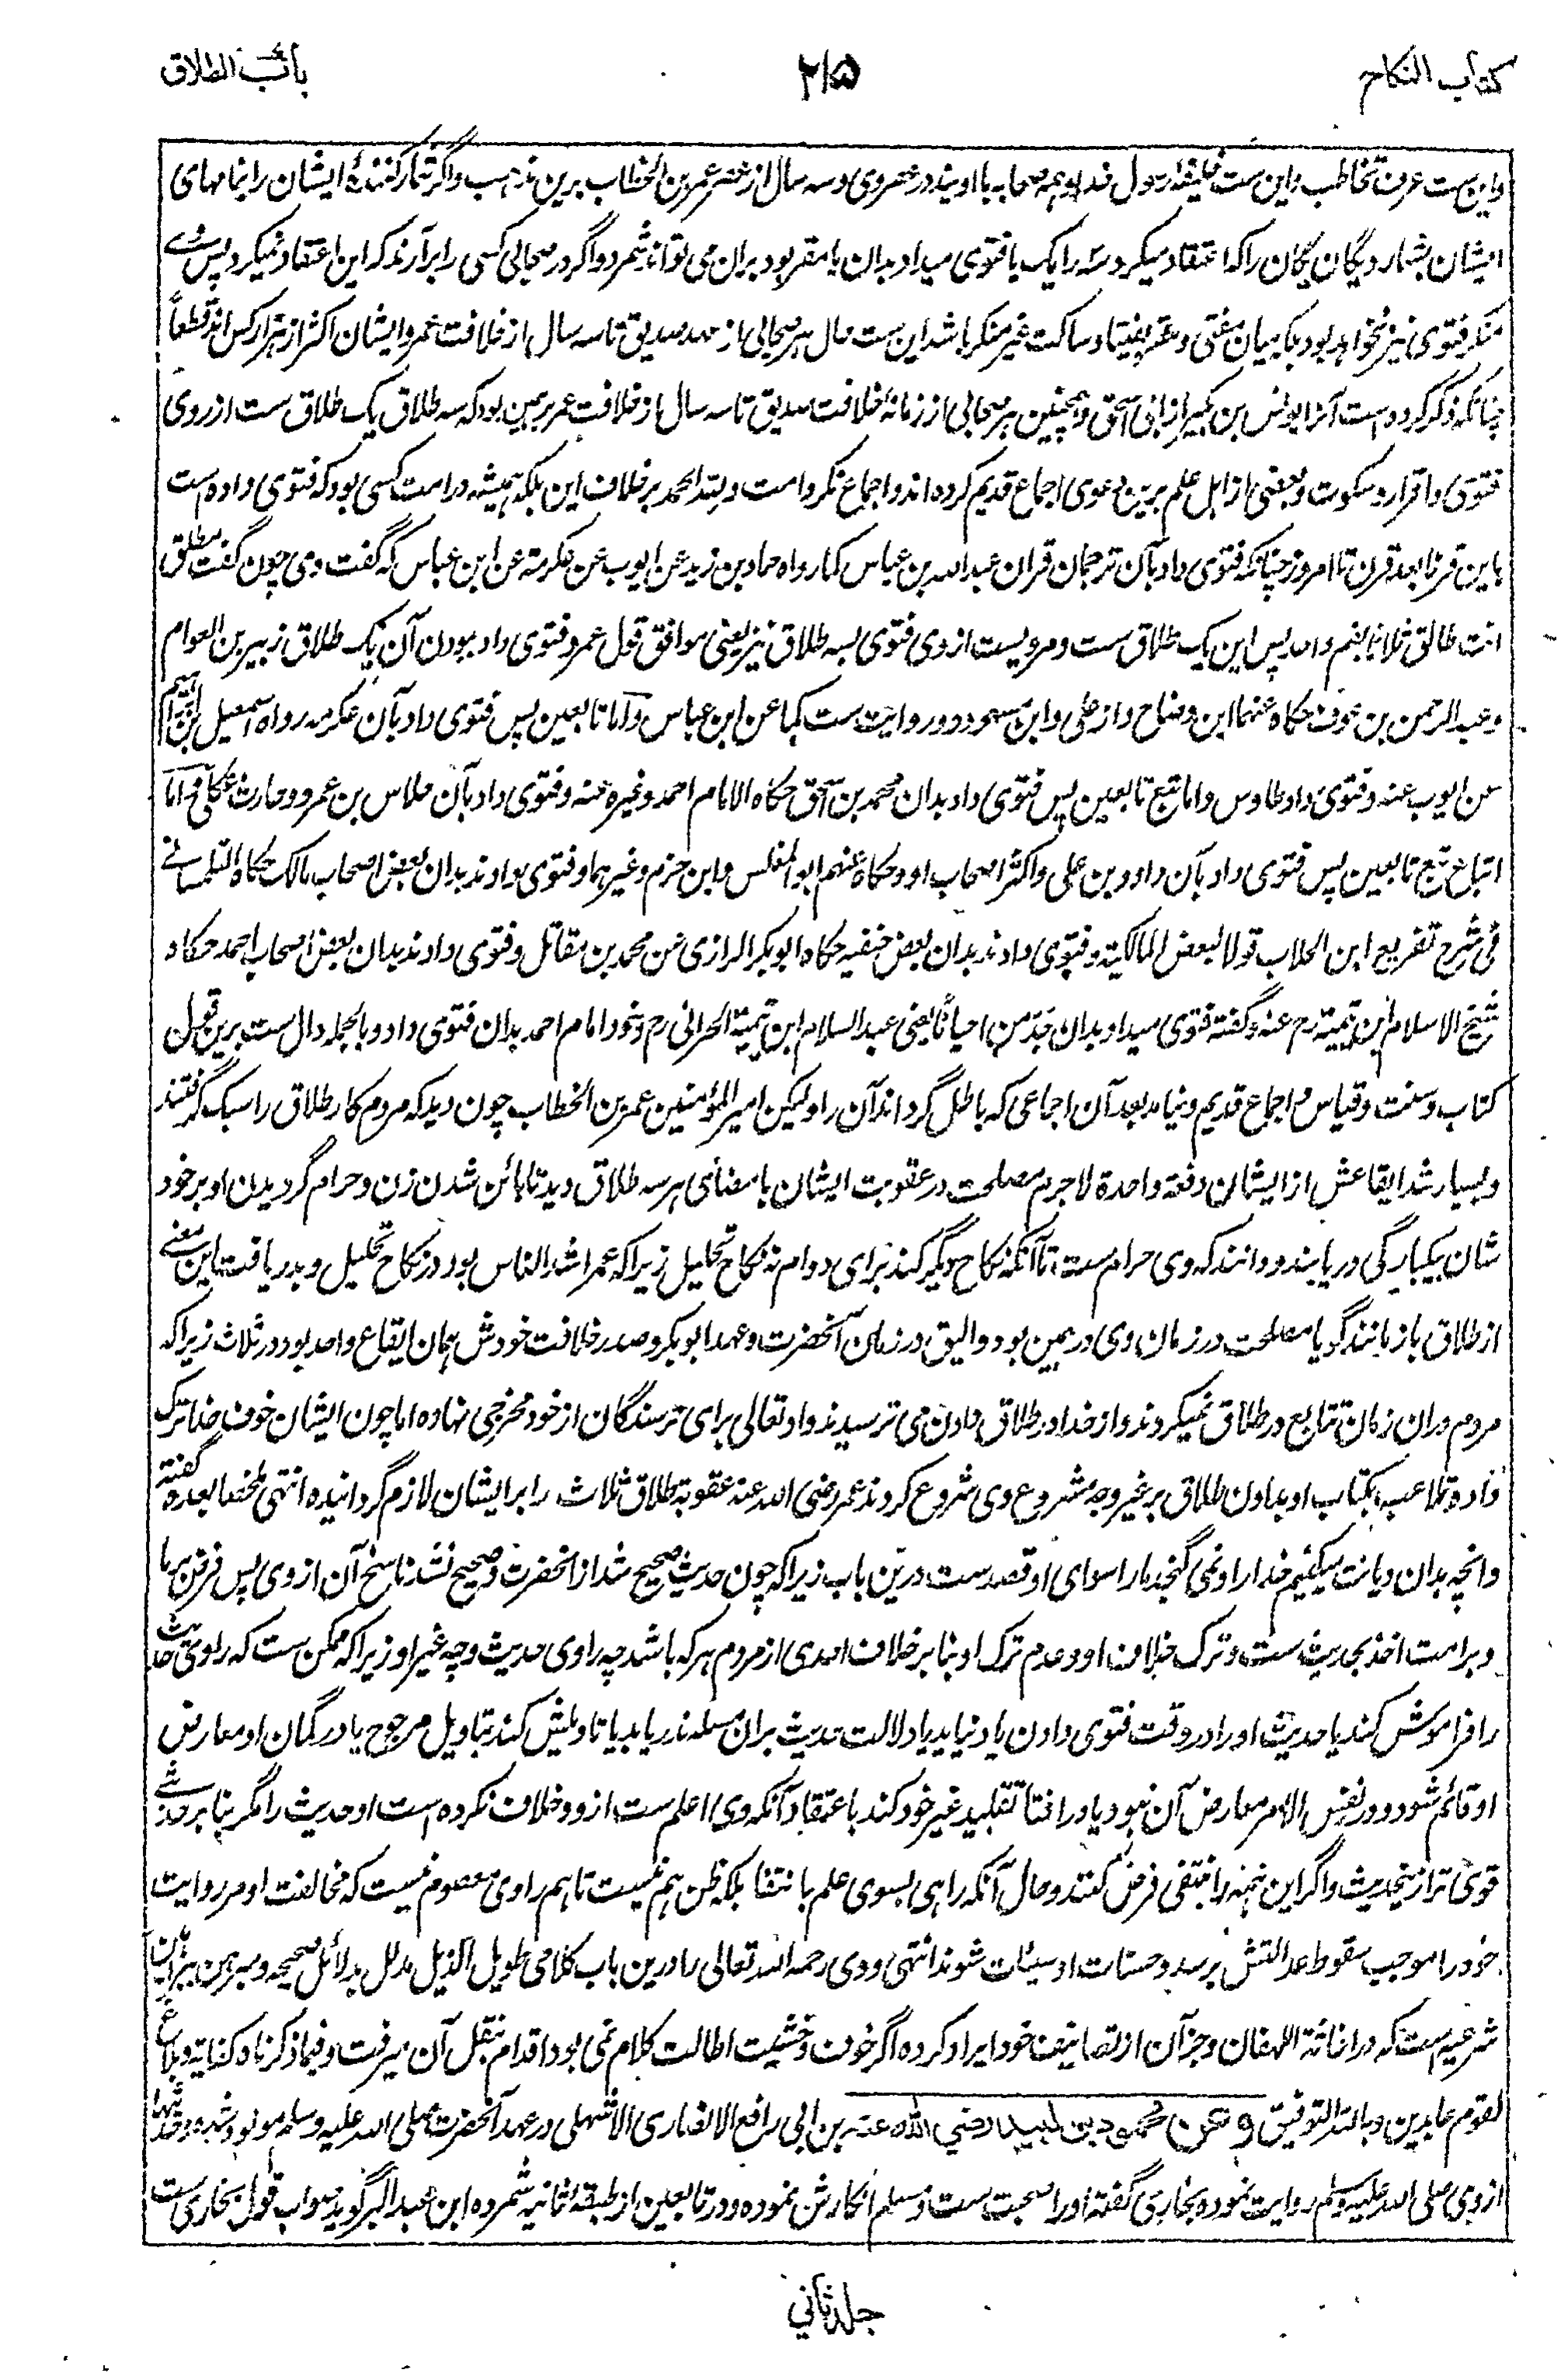 کتاب النکاح
۲۱۵
باب الطلاق
واین ست عرف تخاطب واین ست خلیفهٔ رسول خدا و همه صحابه با اویند در عصر وی و سه سال از عصر عمر بن الخطاب برین مذهب و اگر شمار کنندهٔ ایشان را بنامهای
ایشان بشمارد یگان یگان را که اعتقاد میکرد سه را یک یا فتوی میداد بدان یا مقر بود بران می تواند شمرد و اگر در صحابی کسی را برآرند که این اعتقاد نمیکرد پس وے
منکر فتوی نیز نخواهد بود بلکه میان مفتی و مقر بفتیا و ساکت غیر منکر باشد این ست حال هر صحابی از عهد صدیق تا سه سال از خلافت عمر و ایشان اکثر از هزار کس اند قطعاً
چنانکه ذکر کرده ست آنرا یونس بن بکیر از ابی اسحق و همچنین هر صحابی از زمانهٔ خلافت صدیق تا سه سال از خلافت عمر برین بود که سه طلاق یک طلاق ست از روی
فتوی و اقرار و سکوت و بعضی از اهل علم برین دعوی اجماع قدیم کرده اند و اجماع نکرد امت و لله الحمد بر خلاف این بلکه همیشه در امت کسی بود که فتوی داده ست
باین قرنا بعد قرن تا امروز چنانکه فتوی داد بآن ترجمان قران عبدالله بن عباس کما رواه حماد بن زید عن ایوب عن عکرمة عن ابن عباس که گفت وی چون گفت مطلق
انت طالق ثلاثا بفم واحد پس این یک طلاق ست و مرویست از وی فتوی بسه طلاق نیز یعنی موافق قول عمر و فتوی داد ببودن آن یک طلاق زبیر بن العوام
و عبد الرحمن بن عوف حکاه عنهما ابن وضاح و از علی و ابن مسعود دو روایت ست کما عن ابن عباس و اما تابعین پس فتوی داد بآن عکرمه رواه اسمعیل بن ابراهیم
عن ایوب عنه و فتوی داد طاوس و اما تبع تابعین پس فتوی داد بدان محمد بن اسحق حکاه الامام احمد و غیره عنه و فتوی داد بآن خلاس بن عمرو و حارث عکلی و اما
اتباع تبع تابعین پس فتوی داد بآن داود بن علی و اکثر اصحاب او و حکاه عنهم ابو المغلس و ابن حزم و غیرهما و فتوی دادند بدان بعض اصحاب مالک حکاه التلمسانے
فی شرح تفریع ابن الجلاب قولا لبعض المالکیة و فتوی دادند بدان بعض حنفیه حکاه ابوبکر الرازی عن محمد بن مقاتل و فتوی دادند بدان بعض اصحاب احمد حکاه
شیخ الاسلام ابن تیمیة رح عنه و گفته فتوی میداد بدان جد من احیانًا یعنی عبدالسلام ابن تیمیة الحرانی رح و خود امام احمد بدان فتوی داد و بالجمله دال ست برین قول
کتاب و سنت و قیاس و اجماع قدیم و نیامد بعد آن اجماعی که باطل گرداند آن را و لیکن امیر المؤمنین عمر بن الخطاب چون دید که مردم کار طلاق را سبک گرفتند
و بسیار شد ایقاعش از ایشان دفعة واحدة لاجرم مصلحت در عقوبت ایشان بامضای هر سه طلاق دید تا بائن شدن زن و حرام گردیدن او بر خود
شان بیکبارگی دریابند و دانند که وی حرام ست تا آنکه نکاح دیگر کند برای دوام نه نکاح تحلیل زیراکه عمر اشد الناس بود در نکاح تحلیل و بدریافت این معنے
از طلاق باز مانند گویا مصلحت در زمان وی در همین بود و الیق در زمان آنحضرت و عهد ابوبکر و صدر خلافت خودش همان ایقاع واحد بود در ثلاث زیراکه
مردم دران زمان تتابع در طلاق نمیکردند و از خدا در طلاق دادن می ترسیدند و او تعالی برای ترسندگان از خود مخرجی نهاده اما چون ایشان خوف خدا ترک
داده تلاعب بکتاب او و بدادن طلاق بر غیر وجه مشروع وی شروع کردند عمر رضی الله عنه عقوبة طلاق ثلاث را بر ایشان لازم گردانیده انتهی ملخصا بعده گفته
و انچه بدان دیانت میکنیم خدا را و نمی گنجد ما را سوای او قصد ست درین باب زیراکه چون حدیث صحیح شد از آنحضرت و صحیح نشد ناسخ آن از وی پس فرض بر ما
و بر امت اخذ بحدیث ست و ترک خلاف او و عدم ترک او بنا بر خلاف احدی از مردم هر که باشد چه راوی حدیث و چه غیر او زیراکه ممکن ست که راوی حدیث
را فراموش کند یا حدیث او را در وقت فتوی دادن یاد نیاید یا دلالت حدیث بران مسئله ندریابد یا تاویلش کند بتاویل مرجوح یا در گمان او معارض
او قائم شود و در نفس الامر معارض آن نبود یا در افتا تقلید غیر خود کند باعتقاد آنکه وی اعلم ست ازو و خلاف نکرده ست او حدیث را مگر بنا بر حدیثے
قوی تر از نیحدیث و اگر این همه را منتفی فرض کنند و حال آنکه راهی بسوی علم بانتفا بلکه ظن هم نیست تا هم راوی معصوم نیست که مخالفت او مر روایت
خود را موجب سقوط عدالتش بر سد و حسنات او سیئات شوند انتهی و وی رحمه الله تعالی را درین باب کلامی طویل الذیل مدلل بدلائل صحیحه و مبرهن ببراهین
شرعیه ست که در اغاثة اللهفان و جز آن از تصانیف خود ایراد کرده اگر خوف و خشیت اطالت کلام نمی بود اقدام بنقل آن میرفت و فیما ذکرناه کفایة و بلاغ
لقوم عابدین و بالله التوفیق وعن محمود بن لبید رضي الله عنه بن ابی رافع الانصاری الاشهلی در عهد آنحضرت صلی الله علیه وسلم مولود شده و حدیثها
از وی صلی الله علیه وسلم روایت نموده بخاری گفته او را صحبت ست و مسلم انکارش نموده و در تابعین از طبقهٔ ثانیه شمرده ابن عبد البر گوید صواب قول بخاری ست
جلد ثاني